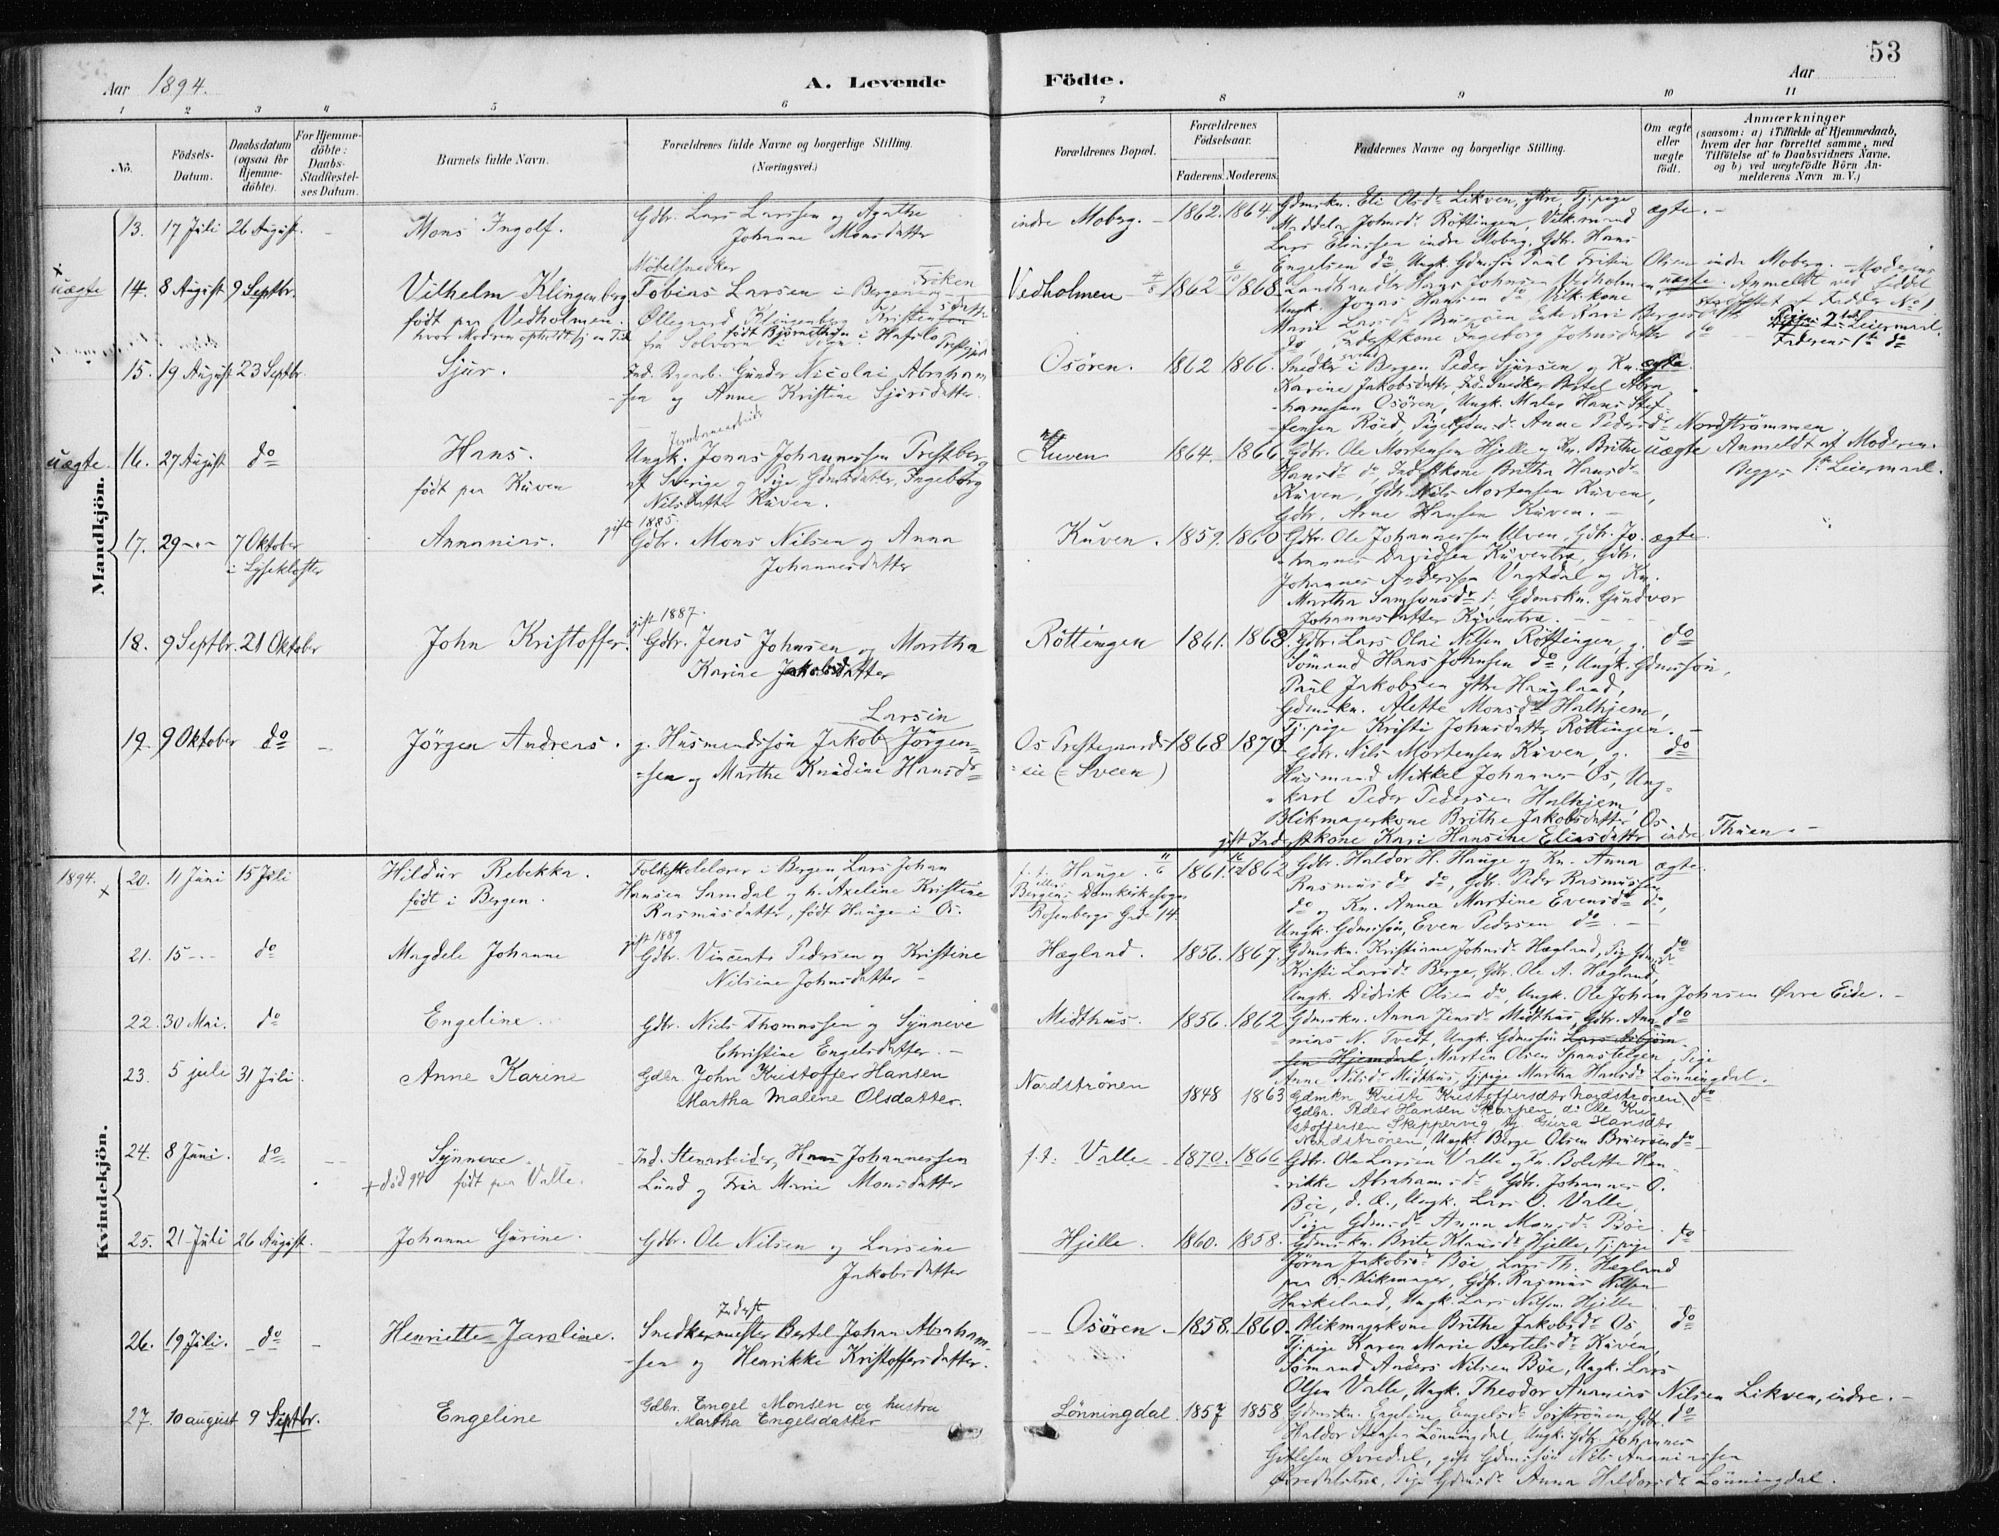 53
Aar 1894.
A. Levende Födte.
Aar
1 2 3 4 5 6 7 8 9 10 11
No.
Födsels-Datum.
Daabsdatum (ogsaa for Hjemmedöbte).
For Hjemmedöbte: Daabs-Stadfæstelses Datum.
Barnets fulde Navn.
Forældrenes fulde Navne og borgerlige Stilling. (Næringsvei.)
Forældrenes Bopæl.
Forældrenes Födselsaar.
Faderens. Moderens.
Faddernes Navne og borgerlige Stilling.
Om ægte eller uægte födt.
Anmærkninger
(saasom: a) i Tilfælde af Hjemmedaab, hvem der har forrettet samme, med Tilföielse af to Daabsvidners Navne, og b) ved uægtefödte Börn Anmelderens Navn m. V.)
Mandkjön.
13. 17 Juli 26 August.
Mons Ingolf.
Gdbr. Lars Larssen og Agathe
Johanne Monsdatter
indre Moberg. 1862. 1864.
Gdmskn. Eli Olsdr Likven, yttre, Tj.pige
Maddela Johnsdr Röttingen, Vilk.mand
Lars Elinssen indre Moberg, Gdbr. Hans
Engelsen do Ungk. Gdmssön Paul Olsen indre Moberg.
ægte.
uægte 14. 8 August 9 Septbr.
Vilhelm Klingenberg
født paa Vedholmen.
hvor Modren opholdt sj. en Tid
Møbelsnedker
Tobias Larsen i Bergen og Frøken
Øllegaard Klingenberg Kristensdatter
fra Solvorn i Sogn i Hafslo
Vedholmen 1862 1868
Landhandler Hans Johnsen Vedholmen
Ungk. Jonas Hansen do Vilk.kone
do, Inderstkone Ingeborg Johnsdatter do
uægte. Anmeldt ved Seddel
Moderens 2det Leiermaal.
Faderens 1ste do
15. 19 August 23 Septbr.
Sjur.
Ind. Dagarb. Gunder Nicolai Abraham
-sen og Anne Kristine Sjursdatter.
Osören. 1862 1866.
Snedkersvend i Bergen Peder Sjursen og Kn.
Karine Jakobsdatter, Ind. Snedker Bertel Abra
-hamsen Osören, Ungk. Maler Hans Stef
-fensen Röed, Pige Gdmsdr Anne Pedersdr Nordströmmen
ægte.
uægte. 16. 27 August do
Hans.
født paa Kuven
Jernbanearbeider
Ungk. Jonas Johannessen Prestberg
af Sverige og Pige Gdmsdatter, Ingeborg
Nilsdatter Kuven.
Kuven 1864. 1866.
Gdbr. Ole Mortensen Hjelle og Kn. Brithe
Hansdr do, Inderstkone Britha Hansdr
Kuven, Gdbr. Nils Mortensen Kuven,
Gdbr. Arne Hansen Kuven.
uægte Anmeldt af Moderen.
Begges 1ste Leiermaal.
17. 29 - - 7 Oktober
i Lysekloster
Ananias.
gift 1885.
Gdbr. Mons Nilsen og Anna
Johannesdatter
Kuven. 1859. 1860.
Gdbr. Ole Johannessen Ulven, Gdbr. Jo
-hannes Davidsen Kuventræ, Gdbr.
Johannes Anderssen Vagtdal og Kn.
Martha Samsonsdr i, Gdmskn. Gundvor
Johannesdatter Kuventræ.
ægte.
18. 9 Septbr. 21 Oktober
John Kristoffer.
gift 1887.
Gdbr. Jens Johnsen og Martha
Karine Jakobsdatter
Röttingen 1861. 1868.
Gdbr. Lars Olai Nilsen Röttingen, g.
Sömand Hans Johnsen do, Ungk. Gdmssön,
Paul Jakobsen yttre Haugland,
Gdmskn. Alette Monsdr Halhjem,
Tj.pige Kristi Johnsdatter Röttingen.
do
19. 9 Oktober do
Jörgen Andreas.
g. Husmandssön Jakob Larsin Jörgen-
-sen og Marthe Knudine Hansdr
Os Prestegaards-
eie (= Sveen)
1868 1870
Gdbr. Nils Mortensen Kuven, g.
Husmand Mikkel Johannes Os, Ung-
-karl Peder Pedersen Halhjem,
Blikmagerkone Brithe Jakobsdatter Os
gift Inderstkone Kari Hansine Eliasdatter indre Thuen.
do
Kvindekjön.
1894. 20. 11 Juni 15 Juli
Hildur Rebekka.
født i Bergen.
Folkeskolelærer i Bergen Lars Johan
Hansen Samdal og h. Axeline Kristine
Rasmusdatter, født Hauge i Os.
f.t. Hauge.
ellers Bergens Domkirkesogn
Rosenbergs Gd. 14.
1861. 1862
Gdbr. Haldor H. Hauge og Kn. Anna
Rasmusdr do, Gdbr. Peder Rasmussen
do og Kn. Anna Martine Evensdr do,
Ungk. Gdmssön, Even Pedersen do.
ægte.
21. 15 - - do
Magdele Johanne
gift 1889
Gdbr. Vincents Pedersen og Kristine
Nilsine Johnsdatter
Hægland. 1856. 1867.
Gdmskn. Kristianne Johnsdr Hægland, Pige Gdmsdr
Kristi Larsdr Berge, Gdbr. Ole A. Hægland,
Ungk. Didrik Olsen do, Ungk. Ole Johan Johnsen Øvre Eide.
do
22. 30 Mai. do
Engeline.
Gdbr. Niels Thomassen og Synneve
Christine Engelsdatter.
Midthus. 1856. 1862
Gdmskn. Anna Jensdr Midthus, Gdbr. Ana-
nias N. Tvedt, Ungk. Gdmssön Lars Asbjørn-
sen Hjemdal, Martin Olsen Spanstelgen, Pige
Anne Nilsdr Midthus, Tj.pige Martha Hansdr Lönningdal.
do
23. 5 juli 31 Juli.
Anne Karine
Gdbr. John Kristoffer Hansen
Martha Malene Olsdatter.
Nordströnen 1848 1863
Gdmkn Kriste Kristoffersdtr Nordströnen,
Gdbr. Peder Hansen Skorpen, do Ole Kri-
stoffersen Skeppervig og Gura Hansdtr
Nordströnen, Ungk. Berge Olsen Bruerøen
do
24. 8 Juni. do
Synneve.
+ død 94 født paa Valle.
Ind. Stenarbeider, Hans Johannessen
Lund og Fria Marie Monsdatter
f.t. Valle 1870. 1866
Gdbr. Ole Larsen Valle og Kn. Bolette Hen-
-rikke Abrahamsdr, Gdbr. Johannes O.
Böe, d. Æ., Ungk. Lars O. Valle.
Pige Gdmsdr Anna Monsdr Böe
do
25. 21 Juli 26 August.
Johanne Gurine.
Gdbr. Ole Nilsen og Larsine
Jakobsdatter
Hjelle. 1860. 1858.
Gdmskn. Brite Klausdr Hjelle, Tj.pige
Jörna Jakobsdr Böe, Lars Th. Hegland
Blikmager, Gdbr. Rasmus Nilsen
Haukeland, Ungk. Lars Nilsen Hjelle
do
26. 19 Juli. do
Henriette Jaroline.
Inderst
Snedkermester Bertel Johan Abraham-
-sen og Henrikke Kristoffersdatter.
Osören. 1858. 1860.
Blikmagerkone Brithe Jakobsdr Os,
Tj.pige Karen Marie Bertelsdr Kuven,
Sömand Anders Nilsen Böe, Ungk. Lars
Olsen Valle, Ungk. Theodor Ananias Nilsen Likven, indre.
do
27. 10 august 9 Septbr.
Engeline
Gdbr. Engel Monsen og hustru
Martha Engelsdatter
Lönningdal 1857 1858
Gdmskn. Engeline Engelsdr Sörströnen, Gdbr.
Haldor Lönningdal, Ungk. Gdbr. Johannes
Gitlesen Øvredal, gift Gdmssön Nils Ananiassen
Øvredalstræ, Pige Gdmsdr Anna Haldorsdr Lönningdal.
do